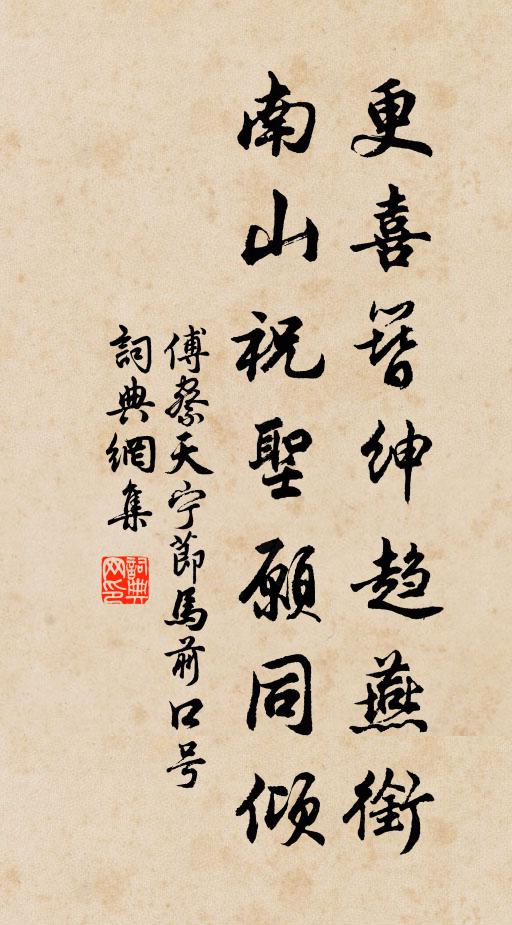 更喜簪紳趋燕銜
南山祝聖願同傾
傅察天宁節馬前口号
詞典網集
詞典网印